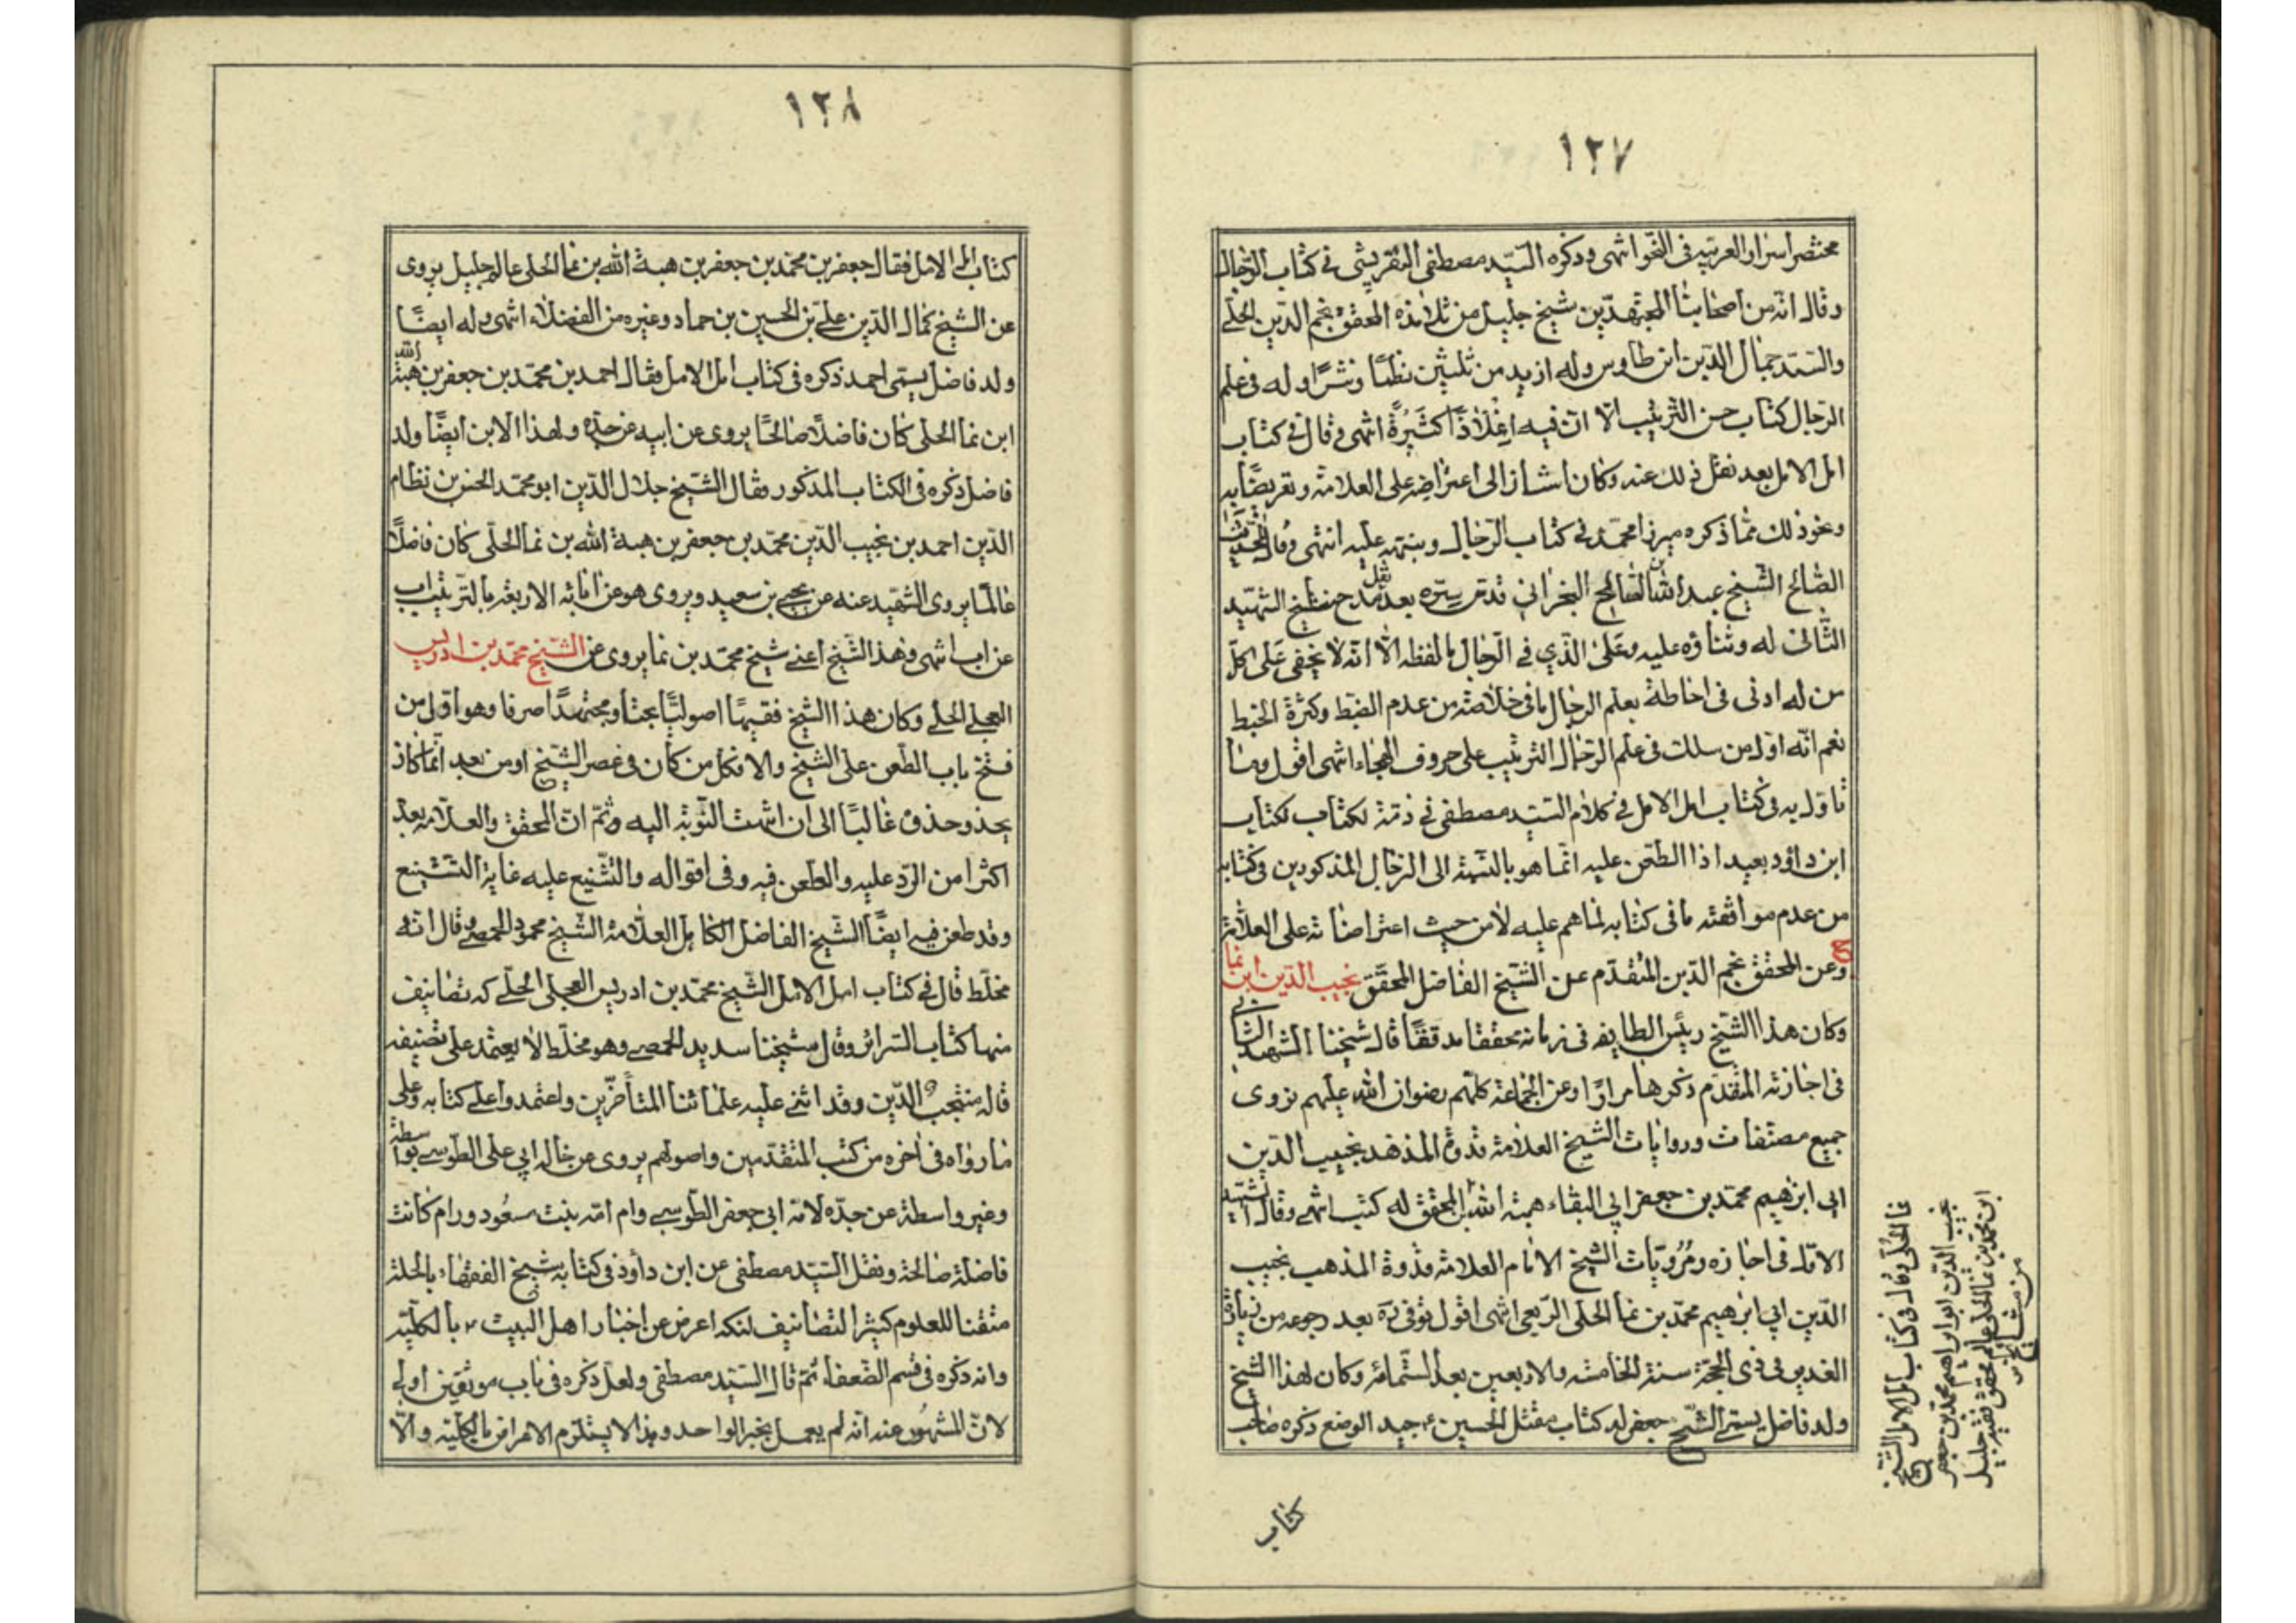 ١٢٧
مختصر اسرار العربية فى النحو انتهى وذكره السيّد مصطفى التفريشى فى كتاب الرّجال
وقال انّه من اصحابنا المجتهدين شيخ جليل من تلامذة المحقق نجم الدين الحلّى
والسيّد جمال الدّين ابن طاوس وله ازيد من ثلثين نظمًا ونثرًا وله فى علم
الرّجال كتاب حسن الترتيب الّا انّ فيه اغلاطًا كثيرةً انتهى وقال فى كتاب
امل الامل بعد نقل ذلك عنه وكان اشار الى اعتراضه على العلامة وتعريضًا به
ونحو ذلك ممّا ذكره ميرزا محمّد فى كتاب الرّجال وينبّه عليه انتهى وقال المحدّث
الصّالح الشّيخ عبد الله بن الصّالح البحرانى قدّس سرّه بعد نقل مدح شيخ الشّهيد
الثّانى له وثناؤه عليه وعلى الّذى فى الرّجال بالفظه الّا انّه لا يخفى على كلّ
من له ادنى فى احاطة بعلم الرجال ما فى خلاصته من عدم الضبط وكثرة الخبط
نعم انّه اوّل من سلك فى علم الرّجال الترتيب على حروف الهجاء انتهى اقول وما
تاوّل به فى كتاب امل الامل فى كلام السيّد مصطفى فى ذمّة لكتاب لكتاب
ابن داود بعيد اذ الطّعن عليه انّما هو بالنّسبة الى الرّجال المذكورين فى كتابه
من عدم موافقته ما فى كتابه لما هم عليه لا من حيث اعتراضاته على العلّامة
ح وعن المحقق نجم الدّين المتقدّم عن الشّيخ الفاضل المحقّق نجيب الدّين ابن نما
وكان هذا الشّيخ رئيس الطايفه فى زمانه محققا مدققًا قال شيخنا الشهيد الثانى
فى اجازته المتقدّم ذكرها مرارًا وعن الجماعة كلّهم رضوان الله عليهم نروى
جميع مصنّفات وروايات الشّيخ العلامة قدوة المذهب نجيب الدّين
ابى ابرهيم محمّد بن جعفر ابى البقاء هبة الله بن المحقق له كتب انتهى وقال الشّهيد
الاوّل فى اجازه ومرويّات الشّيخ الامام العلامة قدوة المذهب نجيب
الدّين ابى ابرهيم محمّد بن نما الحلّى الرّبعى انتهى اقول توفى ره بعد رجوعه من زيارة
الغدير فى ذى الحجّة سنة الخامسه والاربعين بعد السّتمائة وكان لهذا الشيخ
ولد فاضل يسمّى الشّيخ جعفر له كتاب مقتل الحسين ع جيد الوضع ذكره صاحب
كتاب
نما الحلّى وقال فى كتاب امل الامل الشّيخ
نجيب الدّين ابو ابراهيم محمّد بن جعفر
ابن محمّد بن نما الحلى عالم محقق فقيه جليل
من مشائخ
١٢٨
كتاب امل الامل فقال جعفر بن محمّد بن جعفر بن هبة الله بن نما الحلّى عالم جليل يروى
عن الشّيخ كمال الدّين علىّ بن الحسين بن حماد وغيره من الفضلاء انتهى وله ايضًا
ولد فاضل يسمّى احمد ذكره فى كتاب امل الامل فقال احمد بن محمّد بن جعفر بن هبة الله
ابن نما الحلّى كان فاضلًا صالحًا يروى عن ابيه عن جدّه ولهذا الابن ايضًا ولد
فاضل ذكره فى الكتاب المذكور فقال الشّيخ جلال الدّين ابو محمّد الحسن بن نظام
الدّين احمد بن نجيب الدّين محمّد بن جعفر بن هبة الله بن نما الحلّى كان فاضلًا
عالمًا يروى الشّهيد عنه عن يحيى بن سعيد ويروى هو عن ابائه الاربعة بالترتيب اب
عن اب انتهى وهذا الشّيخ اعنى شيخ محمّد بن نما يروى عن الشّيخ محمّد بن ادريس
العجلى الحلّى وكان هذا الشّيخ فقيهًا اصوليًّا بحتًا ومجتهدًا صرفا وهو اوّل من
فتح باب الطّعن على الشّيخ والا فكلّ من كان فى عصر الشّيخ او من بعد انّما كان
يحذو حذوه غالبًا الى ان انتهت النّوبة اليه وثمّ انّ المحقق والعلّامه بعد
اكثرا من الرّد عليه والطعن فيه وفى اقواله والتّشنيع عليه غاية التّشنيع
وقد طعن فيه ايضًا الشّيخ الفاضل الكامل العلّامة الشّيخ محمود الحمصى وقال انّه
مخلّط قال فى كتاب امل الامل الشّيخ محمّد بن ادريس العجلى الحلّى له تصانيف
منها كتاب السرائر وقال شيخنا سديد الحمصى وهو مخلّط لا يعتمد على تصنيفه
قاله منتجب الدّين وقد اثنى عليه علمائنا المتأخرين واعتمدوا على كتابه وعلى
ما رواه فى آخره من كتب المتقدّمين واصولهم يروى عن خاله ابى على الطّوسى بواسطة
وغير واسطة عن جدّه لامّه ابى جعفر الطّوسى وام امّه بنت مسعود ورام كانت
فاضلة صالحة ونقل السّيّد مصطفى عن ابن داود فى كتابه شيخ الفقهاء بالحلة
متقنا للعلوم كثير التّصانيف لكنه اعرض عن اخبار اهل البيت ع بالكليّة
وانه ذكره فى قسم الضّعفاء ثمّ قال السّيّد مصطفى ولعلّ ذكره فى باب موثقين اولى
لانّ المشهور عنه انّه لم يعمل بخبر الواحد وهذا لا يستلزم الاعراض بالكليّة والّا